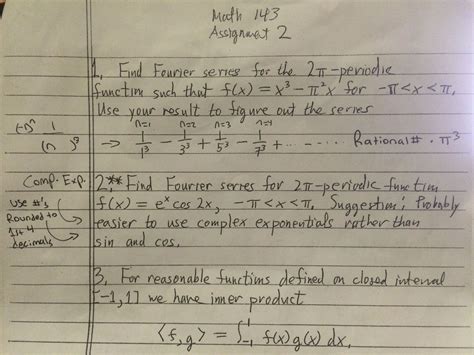 Math 143
Assignment 2
1. Find Fourier series for the 2π-periodic
function such that f(x) = x³ - π²x for -π<x<π.
Use your result to figure out the series
n=1 n=2 n=3 n=4
(-1)ⁿ 1/(n )³ → 1/1³ - 1/3³ + 1/5³ - 1/7³ + ..... Rational# · π³
Comp. Exp. 2.** Find Fourier series for 2π-periodic function
use #'s f(x) = eˣ cos 2x, -π<x<π. Suggestion: Probably
Rounded to easier to use complex exponentials rather than
1st 4 sin and cos.
decimals
3. For reasonable functions defined on closed interval
[-1,1] we have inner product
⟨f,g⟩ = ∫₋₁¹ f(x)g(x)dx,